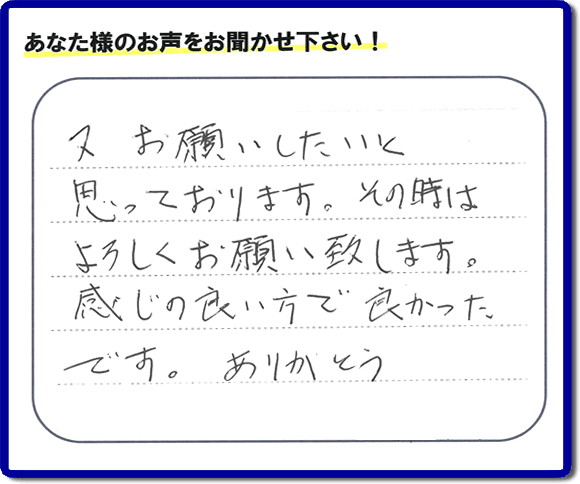 あなた様のお声をお聞かせ下さい！
又 お願いしたいと
思っております。その時は
よろしくお願い致します。
感じの良い方で良かった
です。 ありかとう